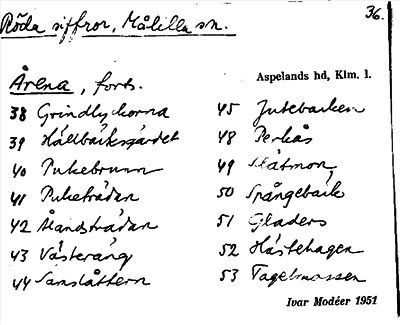 36.
Röda siffror, Målilla sn.
Årena, forts.
Aspelands hd, Klm. l.
38 Grindlyckorna
39 Hällbäcksgärdet
40 Pukebrunn
41 Puketrädan
42 Ålandsträdan
43 Västeräng
44 Samslåttern
45 Jutebacken
48 Perkås
49 Slåtmon
50 Spångebäck
51 Gladers
52 Hästehagen
53 Tagelmossen
Ivar Modéer 1951